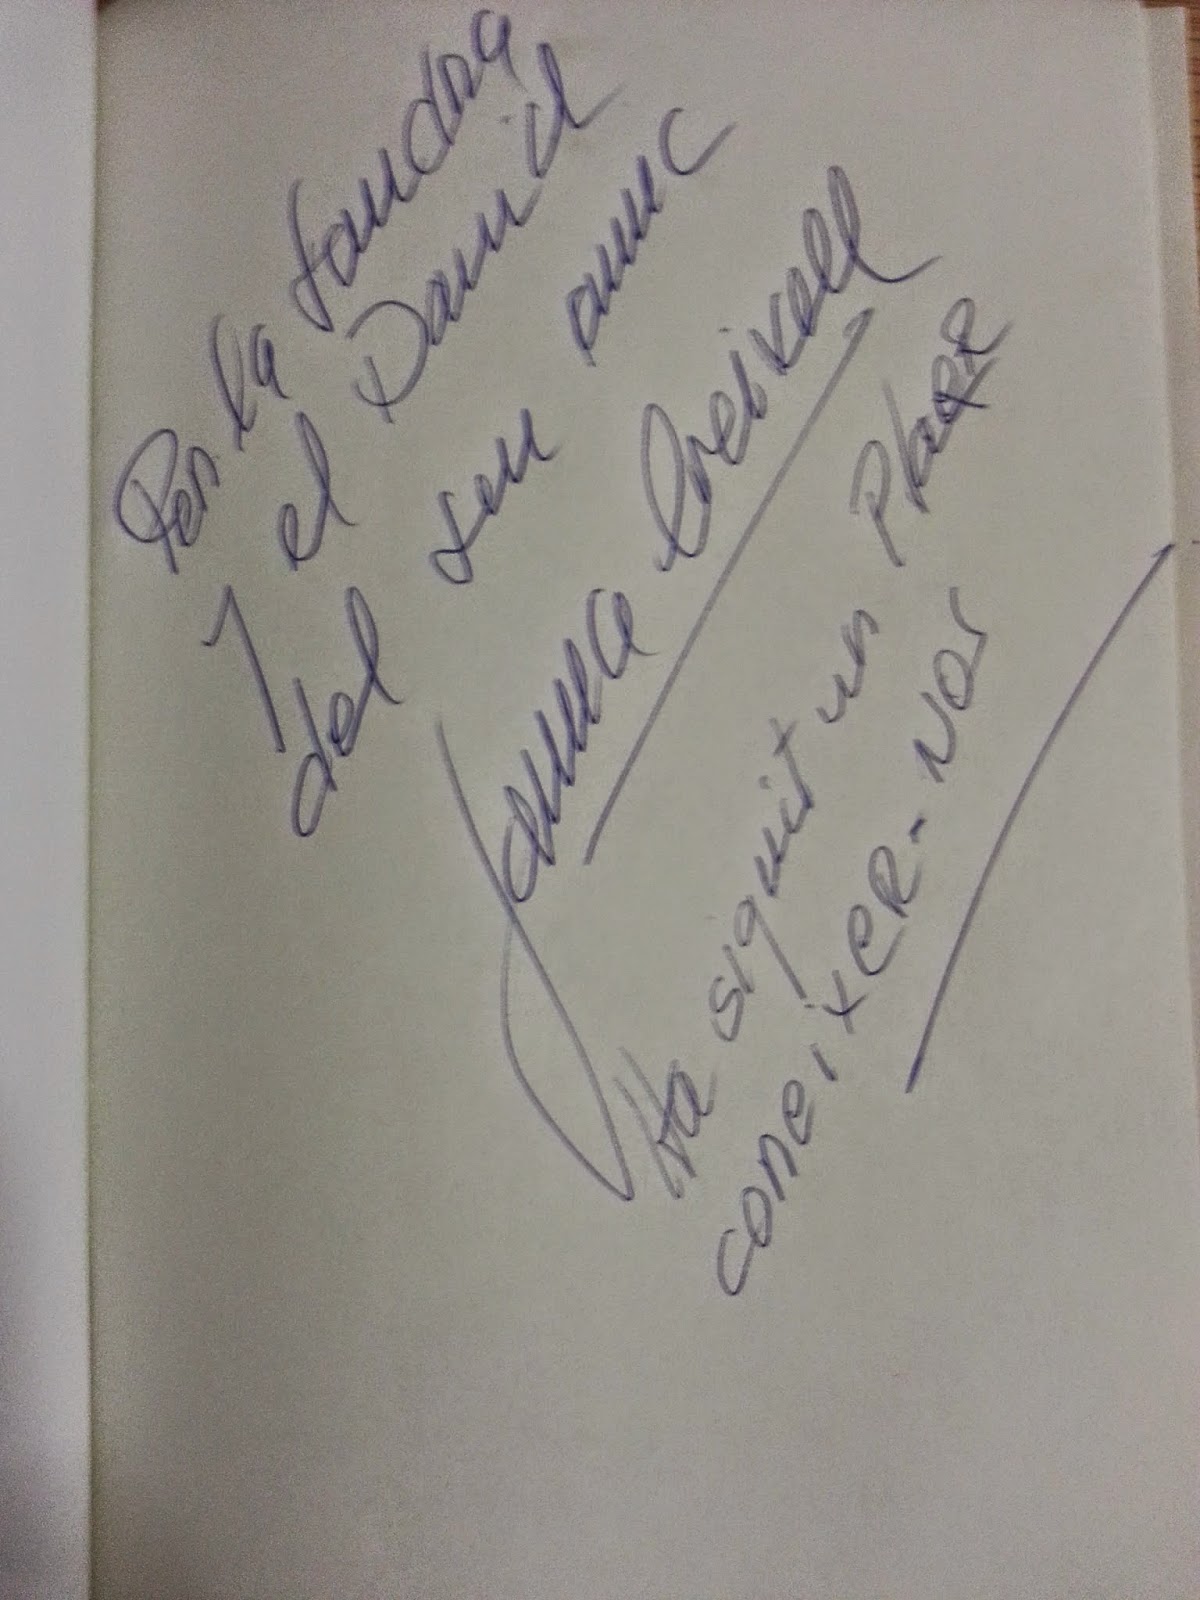 Per la Sandra
I el David
del seu amic
Jaume Creixell
Ha sigut un PlAER
coneixER-NOS